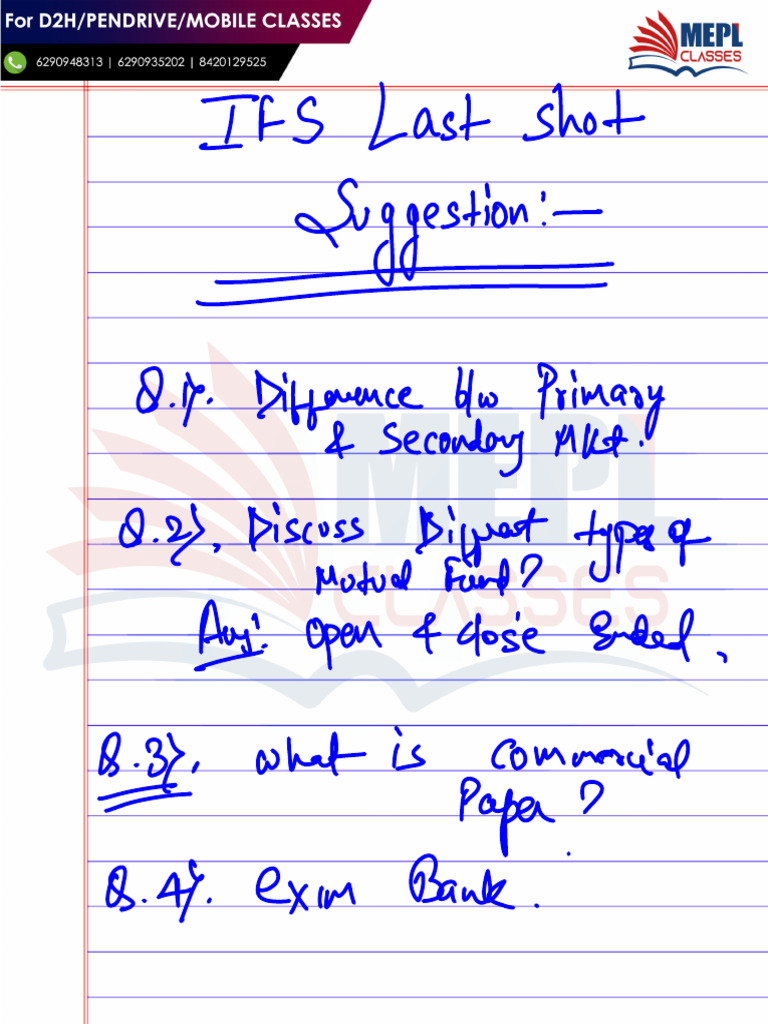 For D2H/PENDRIVE/MOBILE CLASSES
6290948313 | 6290935202 | 8420129525
MEPL
CLASSES
IFS Last shot
Suggestion:-
Q.1). Difference b/w Primary
& Secondary Mkt.
Q.2), Discuss Different types of
Mutual Fund?
Ans: open & close Ended,
Q.3), what is Commercial
Paper?
Q.4). exim Bank.
MEPL
CLASSES